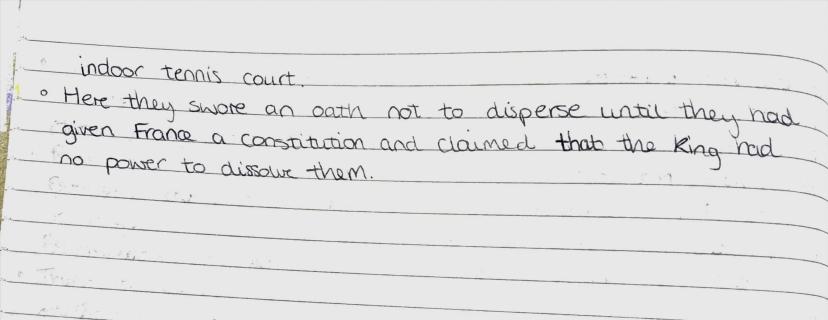 indoor tennis court.
° Here they swore an oath not to disperse until they had
given France a constitution and claimed that the King had
no power to dissolve them.